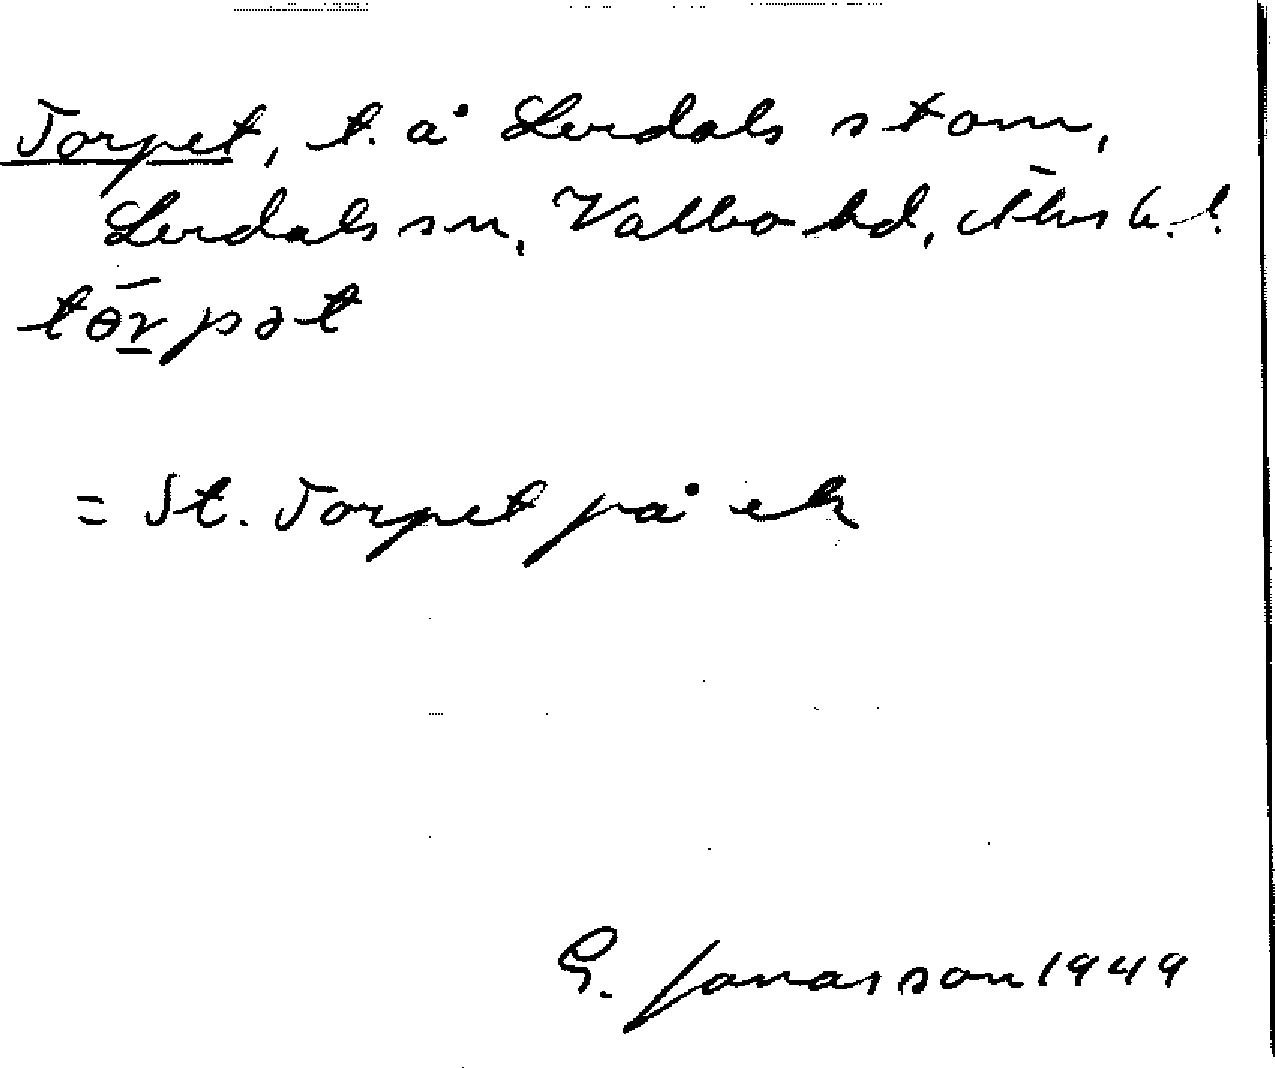 Torpet, t. å Lerdals stom,
Lerdals sn, Valbo hd, Älvsb. l.
tɵr̲pət
= St. Torpet på ek
G. Jonasson 1949